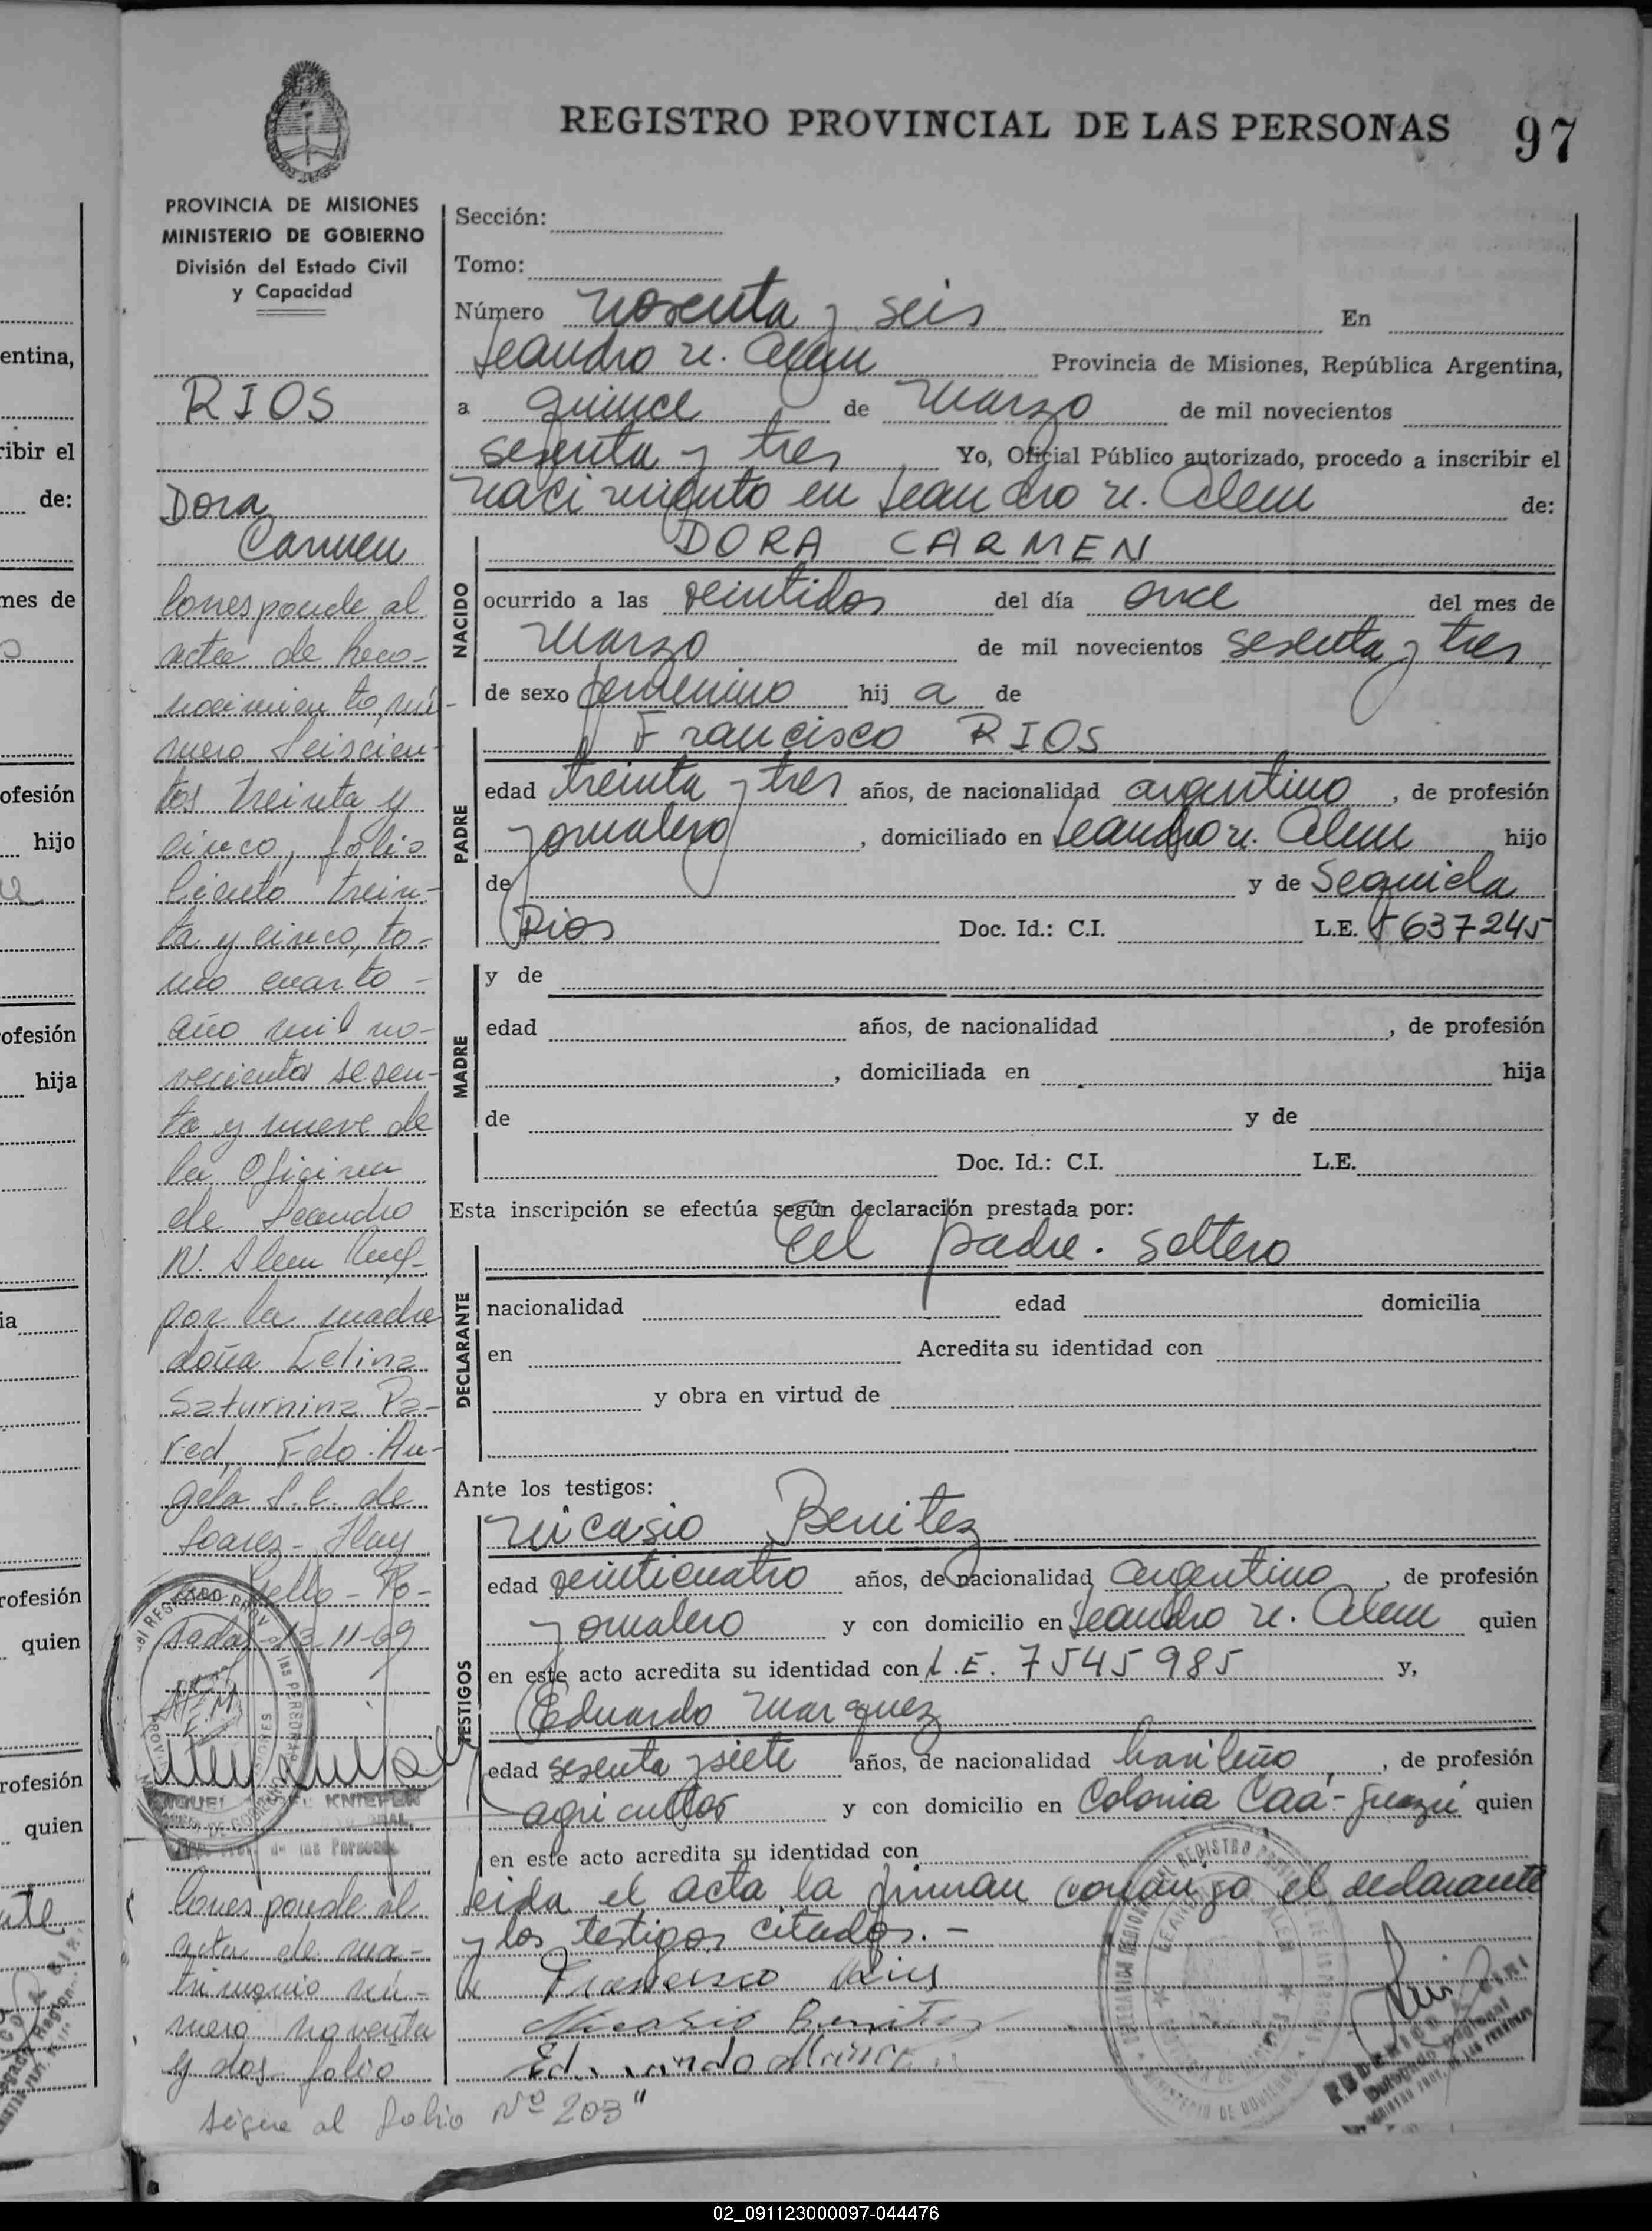 REGISTRO PROVINCIAL DE LAS PERSONAS 97
PROVINCIA DE MISIONES
MINISTERIO DE GOBIERNO
División del Estado Civil
y Capacidad
RIOS
Dora
Carmen
Corresponde al
acta de reco-
nocimiento, nú-
mero seiscien-
tos treinta y
cinco, folio
ciento trein-
ta y cinco, to-
mo cuarto -
año mil no-
vecientos sesen-
ta y nueve de
la Oficina
de Leandro
N. Alem
por la madre
doña Celina
Saturnina Pa-
red, Fdo. An-
gela S. C. de
Soarez - Hay
sello - Po-
sadas 13-11-69
Corresponde al
acta de ma-
trimonio nú-
mero noventa
y dos folio
sigue al folio Nº 203"
Sección:
Tomo:
Número noventa y seis En
Leandro N. Alem Provincia de Misiones, República Argentina,
a quince de marzo de mil novecientos
sesenta y tres Yo, Oficial Público autorizado, procedo a inscribir el
nacimiento en Leandro N. Alem de:
NACIDO
DORA CARMEN
ocurrido a las veintidos del día once del mes de
marzo de mil novecientos sesenta y tres
de sexo femenino hij a de
PADRE
Francisco RIOS
edad treinta y tres años, de nacionalidad argentino, de profesión
jornalero, domiciliado en Leandro N. Alem hijo
de y de Seguida
Rios Doc. Id.: C.I. L.E. 5637245
MADRE
y de
edad años, de nacionalidad, de profesión
, domiciliada en hija
de y de
Doc. Id.: C.I. L.E.
Esta inscripción se efectúa según declaración prestada por:
DECLARANTE
El padre. soltero
nacionalidad edad domicilia
en Acredita su identidad con
y obra en virtud de
Ante los testigos:
TESTIGOS
Nicasio Benitez
edad veinticuatro años, de nacionalidad argentino, de profesión
jornalero y con domicilio en Leandro N. Alem quien
en este acto acredita su identidad con L.E. 7545985 y,
Eduardo Marquez
edad sesenta y siete años, de nacionalidad brasileño, de profesión
agricultor y con domicilio en Colonia Caá-Guazú quien
en este acto acredita su identidad con
Leida el acta la firman conmigo el declarante
y los testigos citados. -
Francisco Rios
Nicasio Benitez
Eduardo
02_091123000097-044476